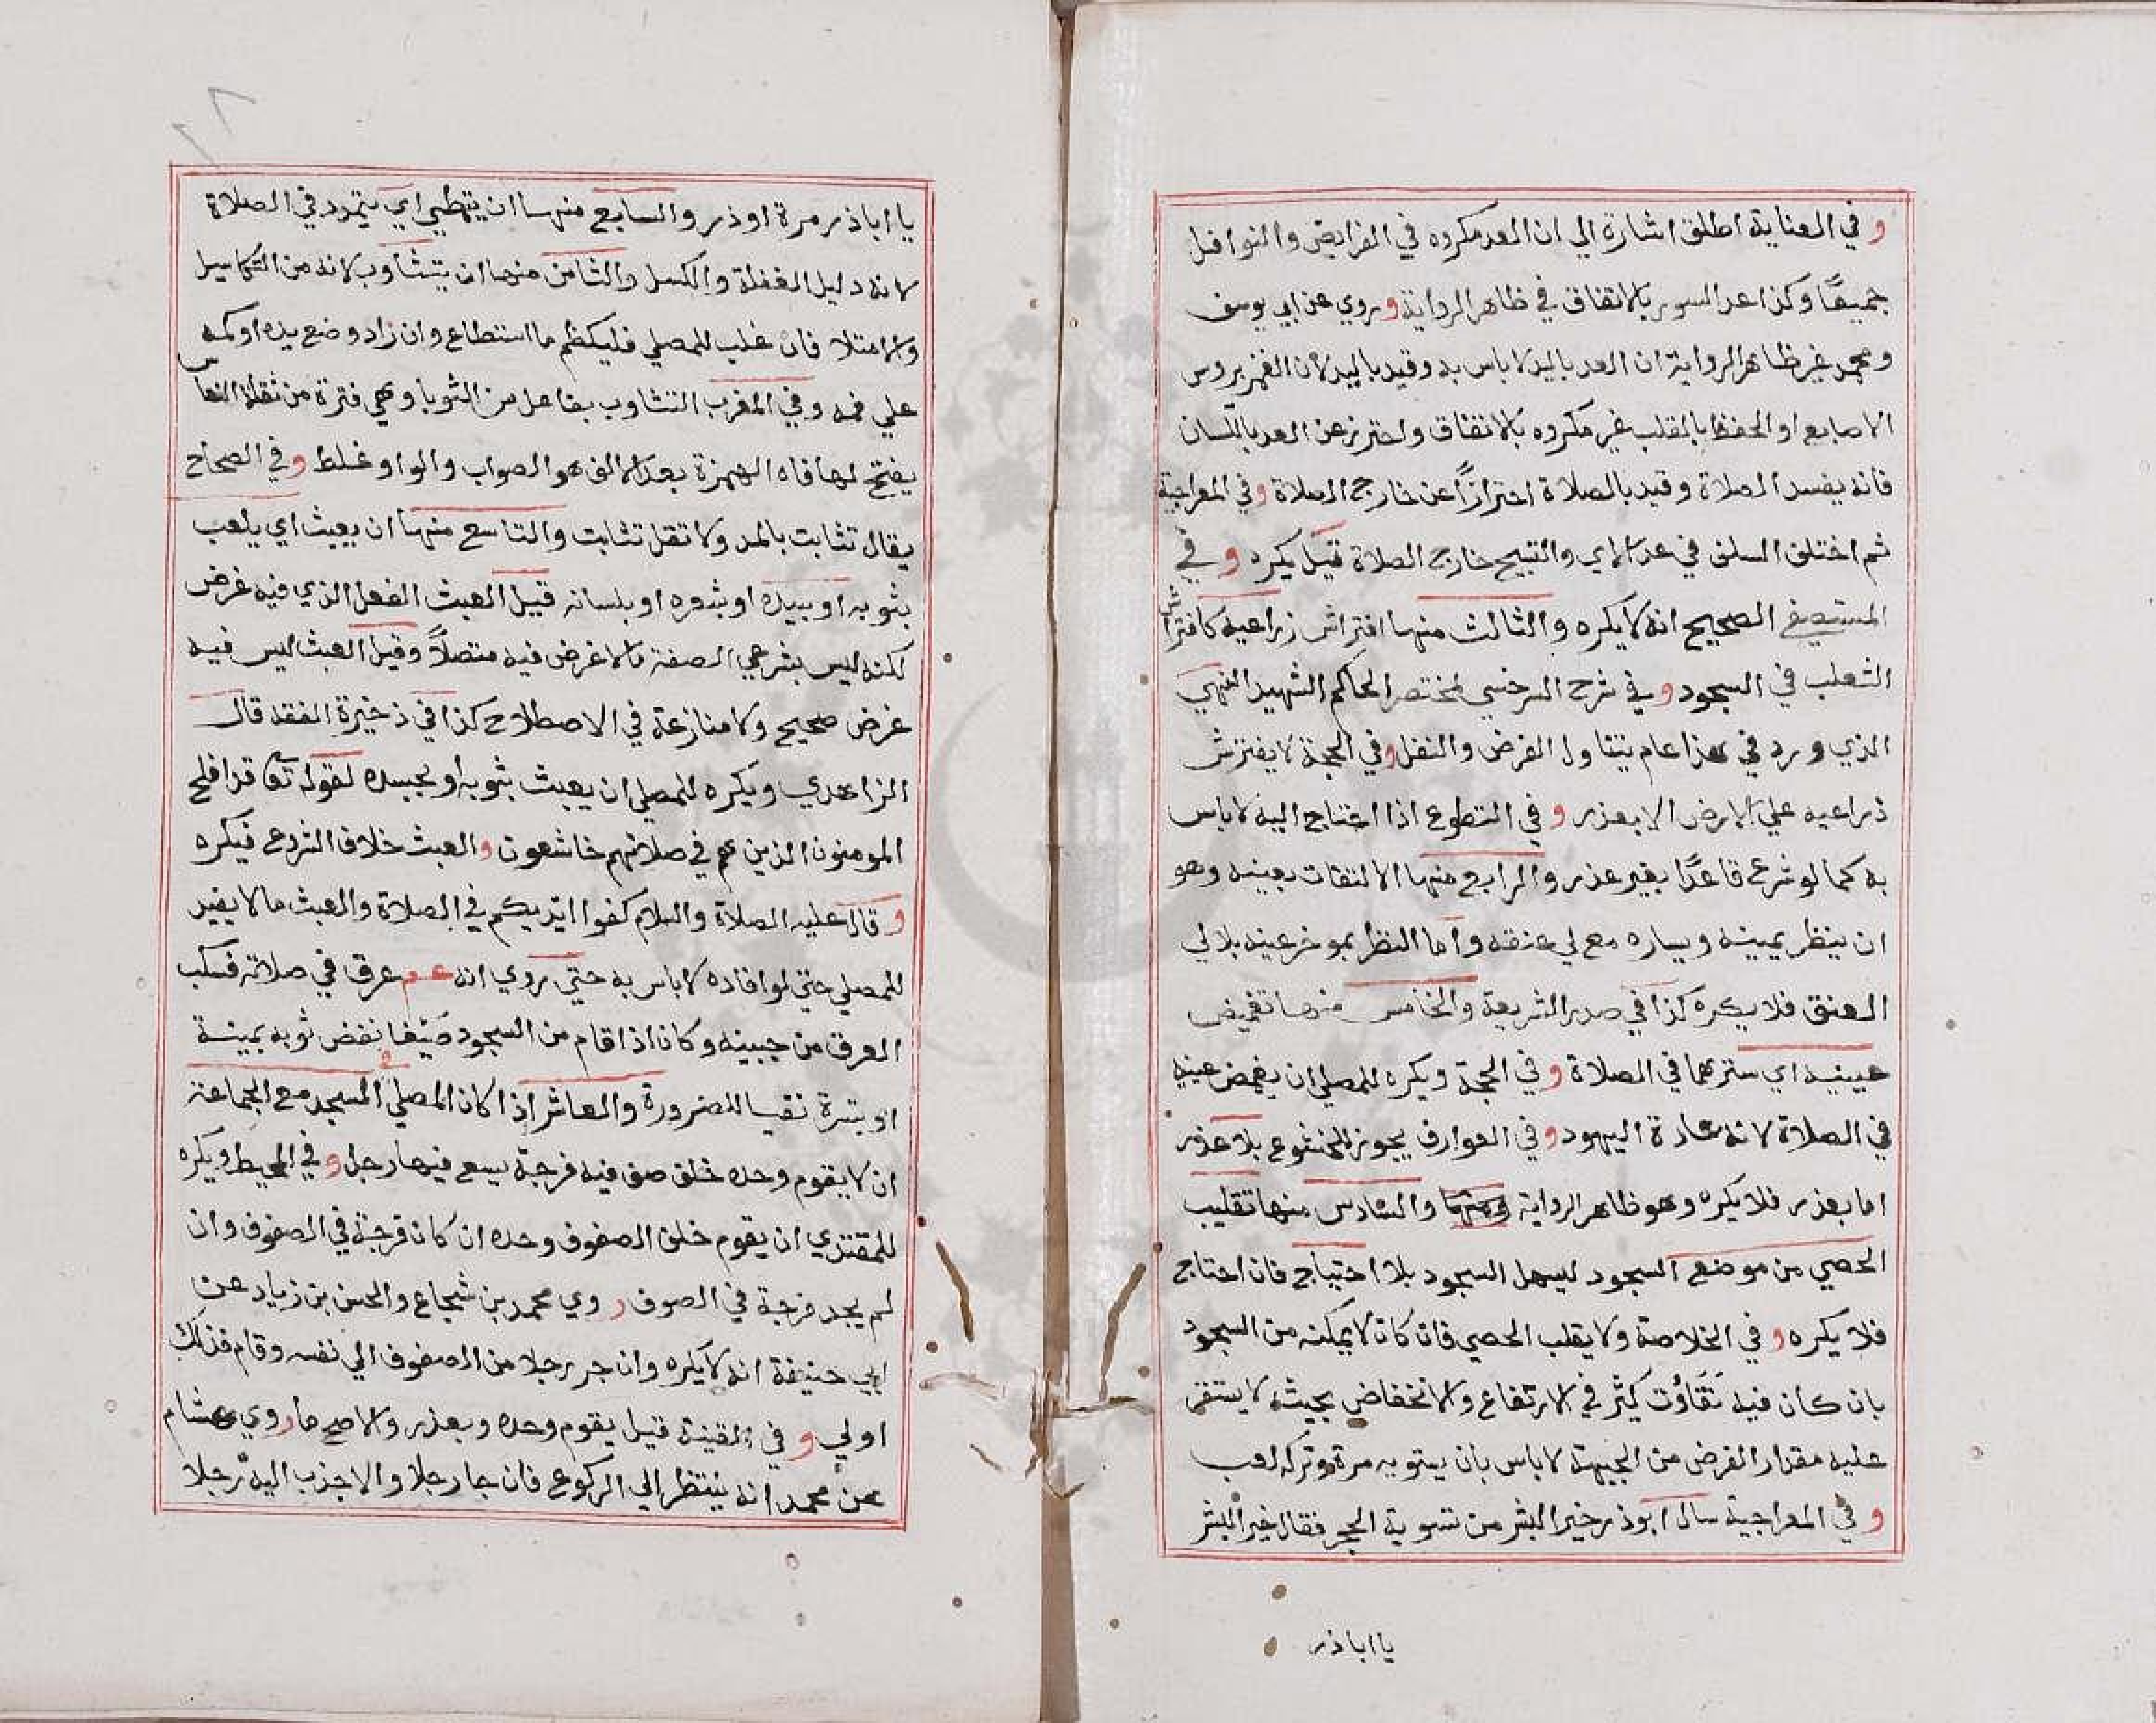 و في العناية اطلق اشارة الي ان العد مكروه في الفرايض والنوافل
جميعًا وكذا عد السور بالاتفاق في ظاهر الرواية وروي عن ابي يوسف
ومحمد غير ظاهر الرواية ان العد باليد لاباس به وقيد باليد لان الغمز بروس
الاصابع او الحفظ بالقلب غير مكروه بالاتفاق واحترز عن العد باللسان
فانه يفسد الصلاة وقيد بالصلاة احترازًا عن خارج الصلاة وفي المعراجية
ثم اختلف السلف في عد الاي والتسبيح خارج الصلاة قيل يكره و في
المستصفي الصحيح انه لا يكره والثالث منها افتراش زراعيه كافتراش
الثعلب في السجود و في شرح السرخسي مختصر الحاكم الشهيد النهي
الذي ورد في هذا عام يتناول الفرض والنفل وفي الحجة لا يفترش
ذراعيه علي الارض الا بعذر و في التطوع اذا احتاج اليه لاباس
به كما لو شرع قاعدًا بغير عذر والرابع منها الالتفات بعينه وهو
ان ينظر يمينه ويساره مع لي عنقه واما النظر بموخر عينه بلا لي
العنق فلا يكره كذا في صدر الشريعة والخامس منها تغميض
عيينه اي سترهما في الصلاة و في الحجة ويكره للمصلي ان يغمض عينيه
في الصلاة لانه عادة اليهود و في العوارف يجوز للخشوع بلا عذر
اما بعذر فلا يكره وهو ظاهر الرواية ومنها والسادس منها تقليب
الحصي من موضع السجود ليسهل السجود بلا احتياج فان احتاج
فلا يكره و في الخلاصة ولا يقلب الحصي فان كان لا يمكنه من السجود
بان كان فيه تفاوت كثر في الارتفاع والانخفاض بحيث لا يستقر
عليه مقدار الفرض من الجبهة لاباس بان يستويه مرة وتركه احب
و في المعراجية سال ابوذر خير البشر من تسوية الحجر فقال خير البشر
يا اباذر
يا اباذر مرة او ذر والسابع منها ان يتمطي اي يتمدد في الصلاة
لانه دليل الغفلة والكسل والثامن منها ان يتثاوب لانه من التكاسل
والامتلا فان غلب للمصلي فليكظم ما استطاع وان زاد وضع يده او كمه
علي فمه وفي المغرب التثاوب تفاعل من الثوبا وهي فترة من ثقلة النعاس
يفتح لها فاه الهمزة بعد الالف هو الصواب والواو غلط و في الصحاح
يقال تثابت بالمد ولا تقل تثابت والتاسع منها ان يعبث اي يلعب
بثوبه او بيده او بشعره او بلسانه قيل العبث الفعل الذي فيه غرض
لكنه ليس بشرعي الصفة ما لا غرض فيه متصلاً وقيل العبث ليس فيه
غرض صحيح ولا منازعة في الاصطلاح كذا في ذخيرة الفقه قال
الزاهدي ويكره للمصلي ان يعبث بثوبه او بجسده لقوله تعا قد افلح
المومنون الذين هم في صلاتهم خاشعون والعبث خلاف الشروع فيكره
و قال عليه الصلاة والسلام كفوا ايديكم في الصلاة والعبث ما لا يفيد
للمصلي حتي لو افاده لاباس به حتي روي انه عم عرق في صلاته فسكب
العرق من جبينه وكان اذا قام من السجود صيفا نفض ثوبه يمينة
او يسرة نفيا للضرورة والعاشر اذا كان المصلي في المسجد مع الجماعة
ان لا يقوم وحده خلف صف فيه فرجة يسع فيها رجل و في المحيط ويكره
للمقتدي ان يقوم خلف الصفوف وحده ان كان فرجة في الصفوف وان
لم يجد فرجة في الصوف روي محمد بن شجاع والحسن بن زياد عن
ابي حنيفة انه لا يكره وان جر رجلا من الصفوف الي نفسه وقام فذلك
اولي و في القينة قيل يقوم وحده وبعذر والاصح ما روي هشام
عن محمد انه ينتظر الي الركوع فان جا رجلا والا جذب اليه رجلا